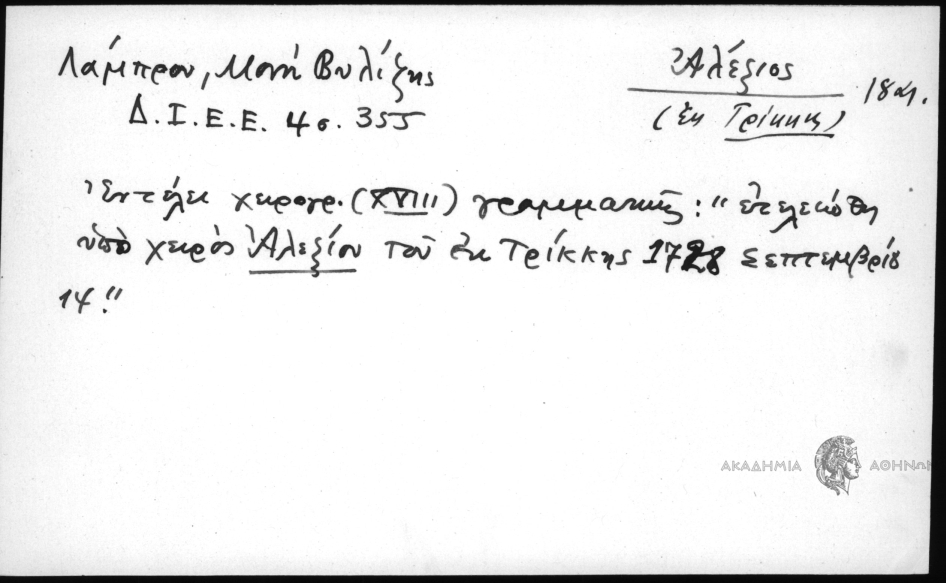 Λάμπρου, Μονή Βυλίζης
Δ.Ι.Ε.Ε. 4 σ. 355
Ἀλέξιος
(ἐκ Τρίκκης)
18 αι.
Ἐν τέλει χειρογρ. (XVIII) γραμματικῆς: "ἐτελειώθη
ὑπὸ χειρὸς Ἀλεξίου τοῦ ἐκ Τρίκκης 1728 Σεπτεμβρίου
14."
ΑΚΑΔΗΜΙΑ ΑΘΗΝΩΝ